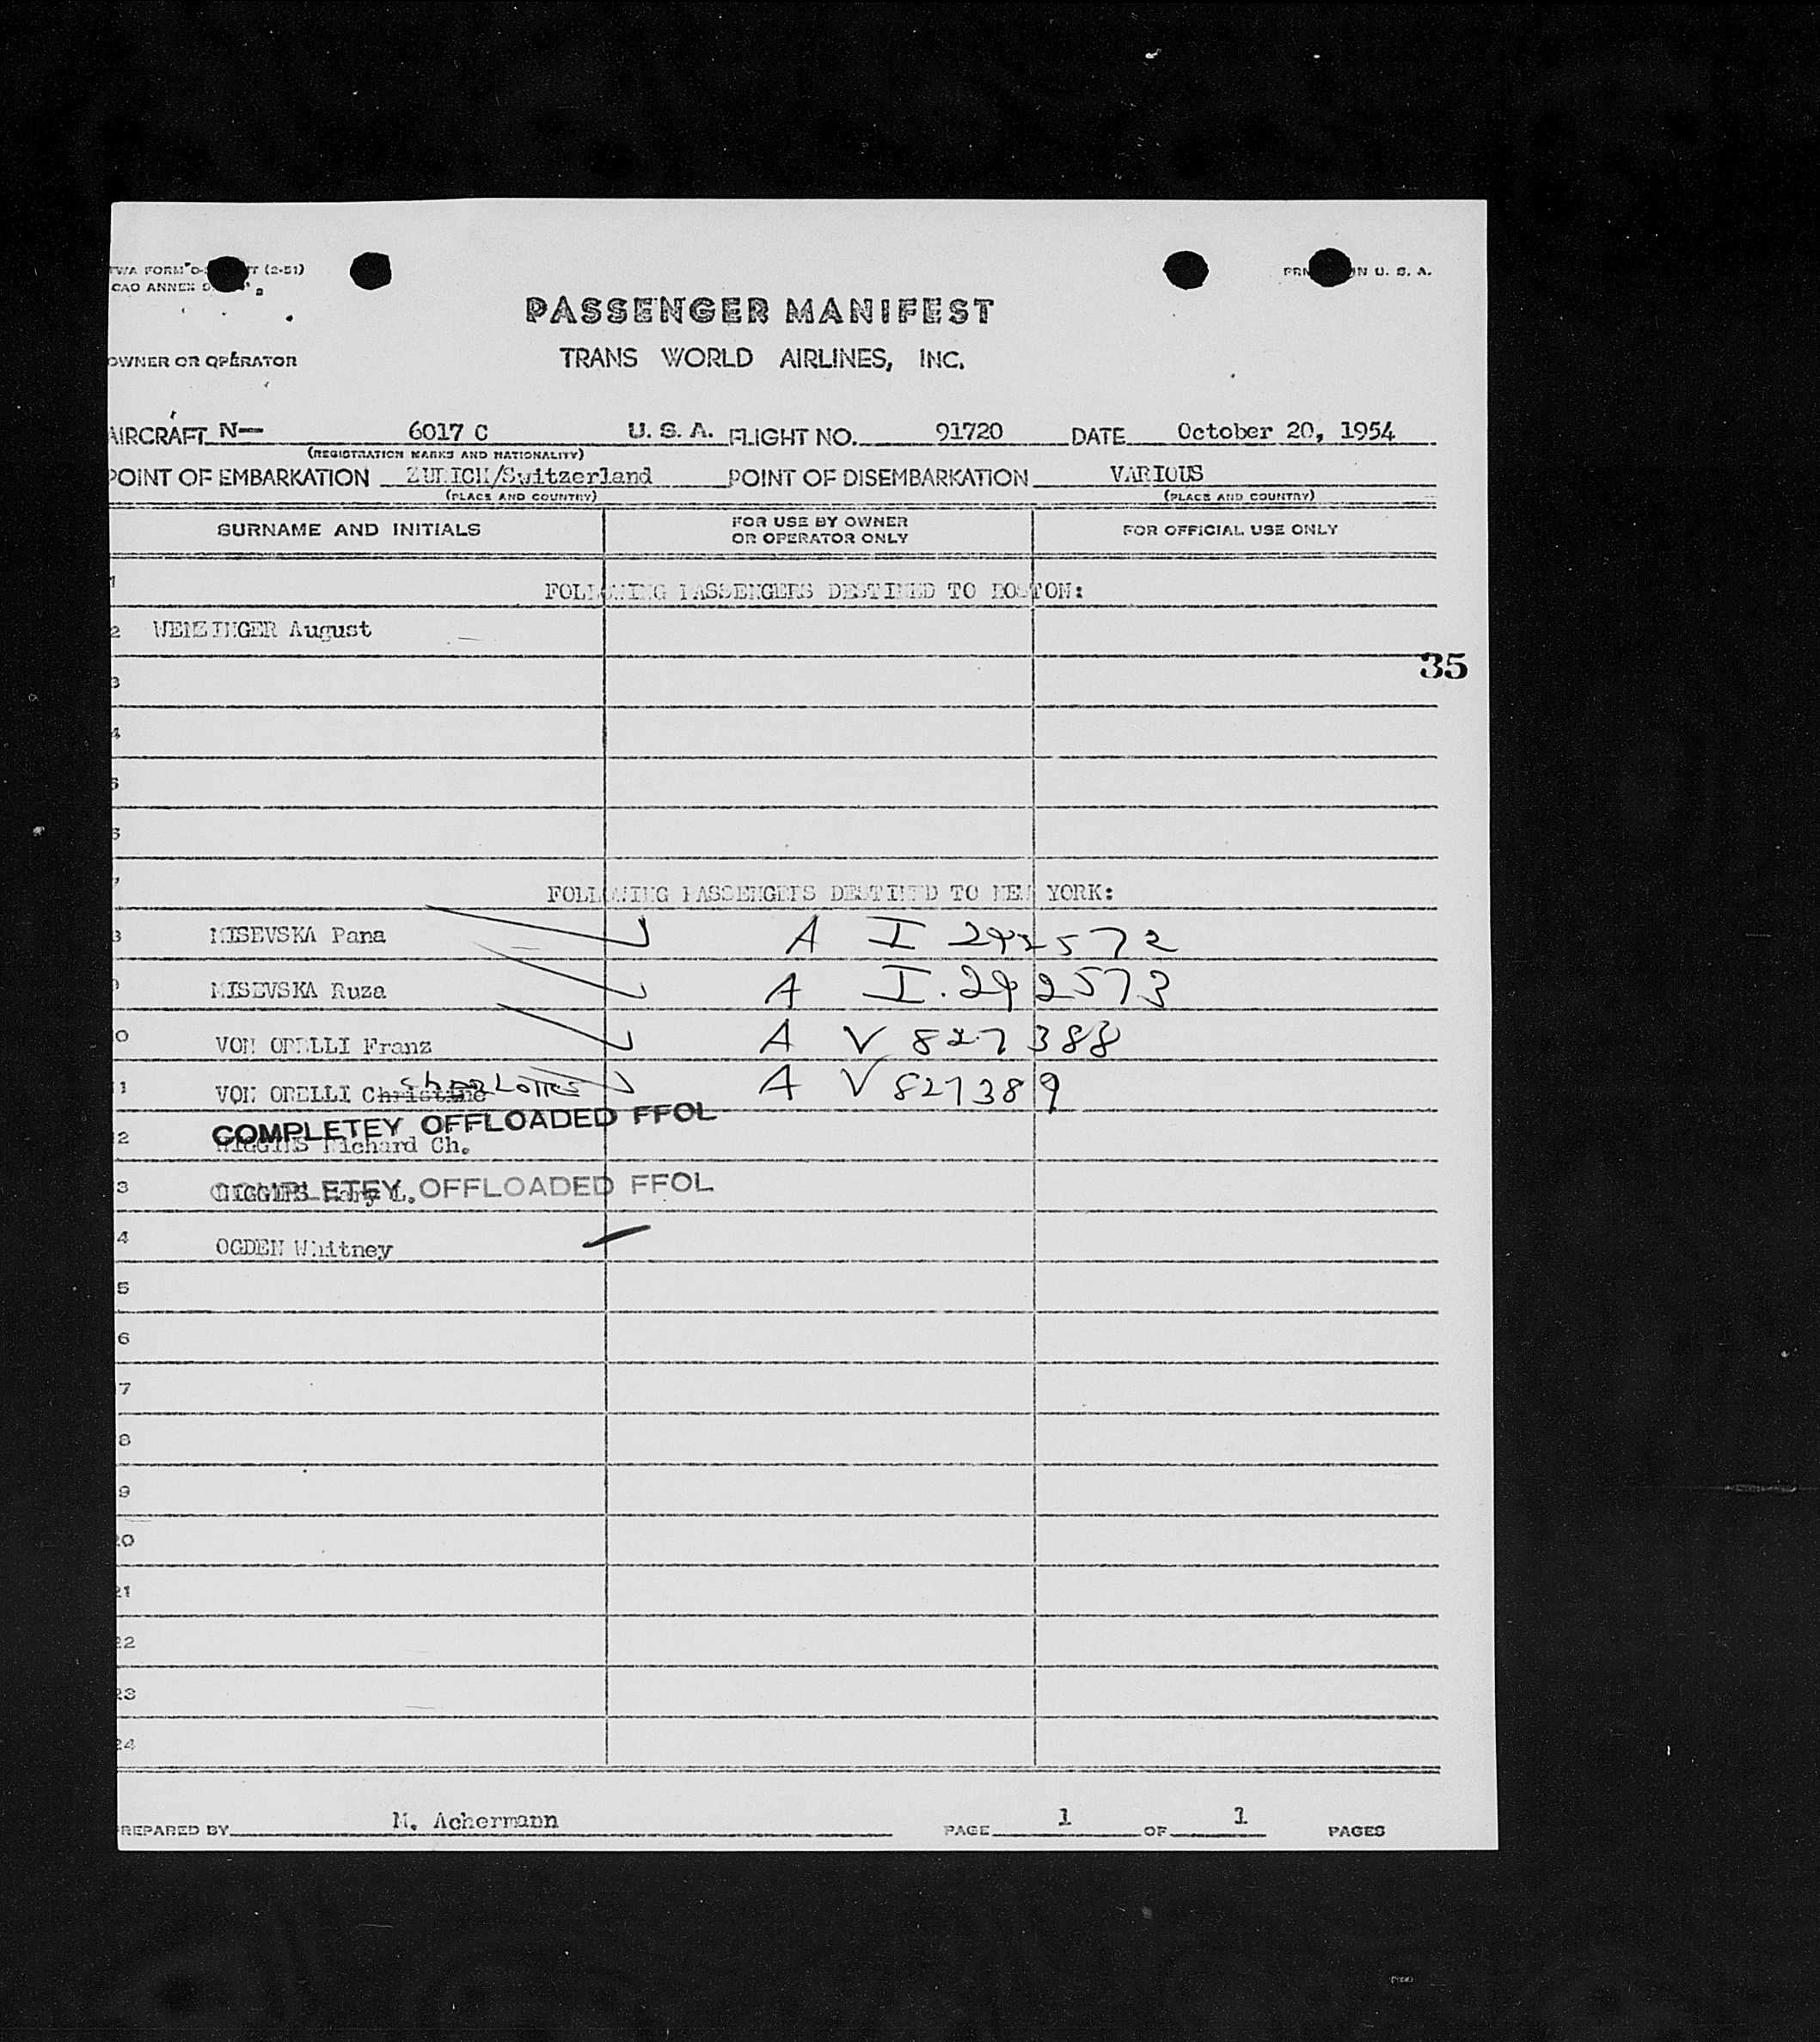 TWA FORM (2-51)
CAO ANNEX
U. S. A.
PASSENGER MANIFEST
OWNER OR OPERATOR
TRANS WORLD AIRLINES, INC.
AIRCRAFT N— 6017 C U. S. A. FLIGHT NO. 91720 DATE October 20, 1954
(REGISTRATION MARKS AND NATIONALITY)
POINT OF EMBARKATION ZURICH/Switzerland POINT OF DISEMBARKATION VARIOUS
(PLACE AND COUNTRY) (PLACE AND COUNTRY)
SURNAME AND INITIALS FOR USE BY OWNER OR OPERATOR ONLY FOR OFFICIAL USE ONLY
1 FOLLOWING PASSENGERS DESTINED TO BOSTON:
2 WENZINGER August
35
3
4
5
6
7 FOLLOWING PASSENGERS DESTINED TO NEW YORK:
8 MISEVSKA Pana A I 292572
9 MISEVSKA Ruza A I.292573
0 VON ORELLI Franz A V 827388
1 VON ORELLI Christine Charlotte A V 827389
COMPLETEY OFFLOADED FFOL
2 HIGGINS Richard Ch.
3 HIGGINS Mary L. COMPLETEY OFFLOADED FFOL
4 OGDEN Whitney
5
6
7
8
9
20
21
22
23
24
PREPARED BY M. Achermann PAGE 1 OF 1 PAGES